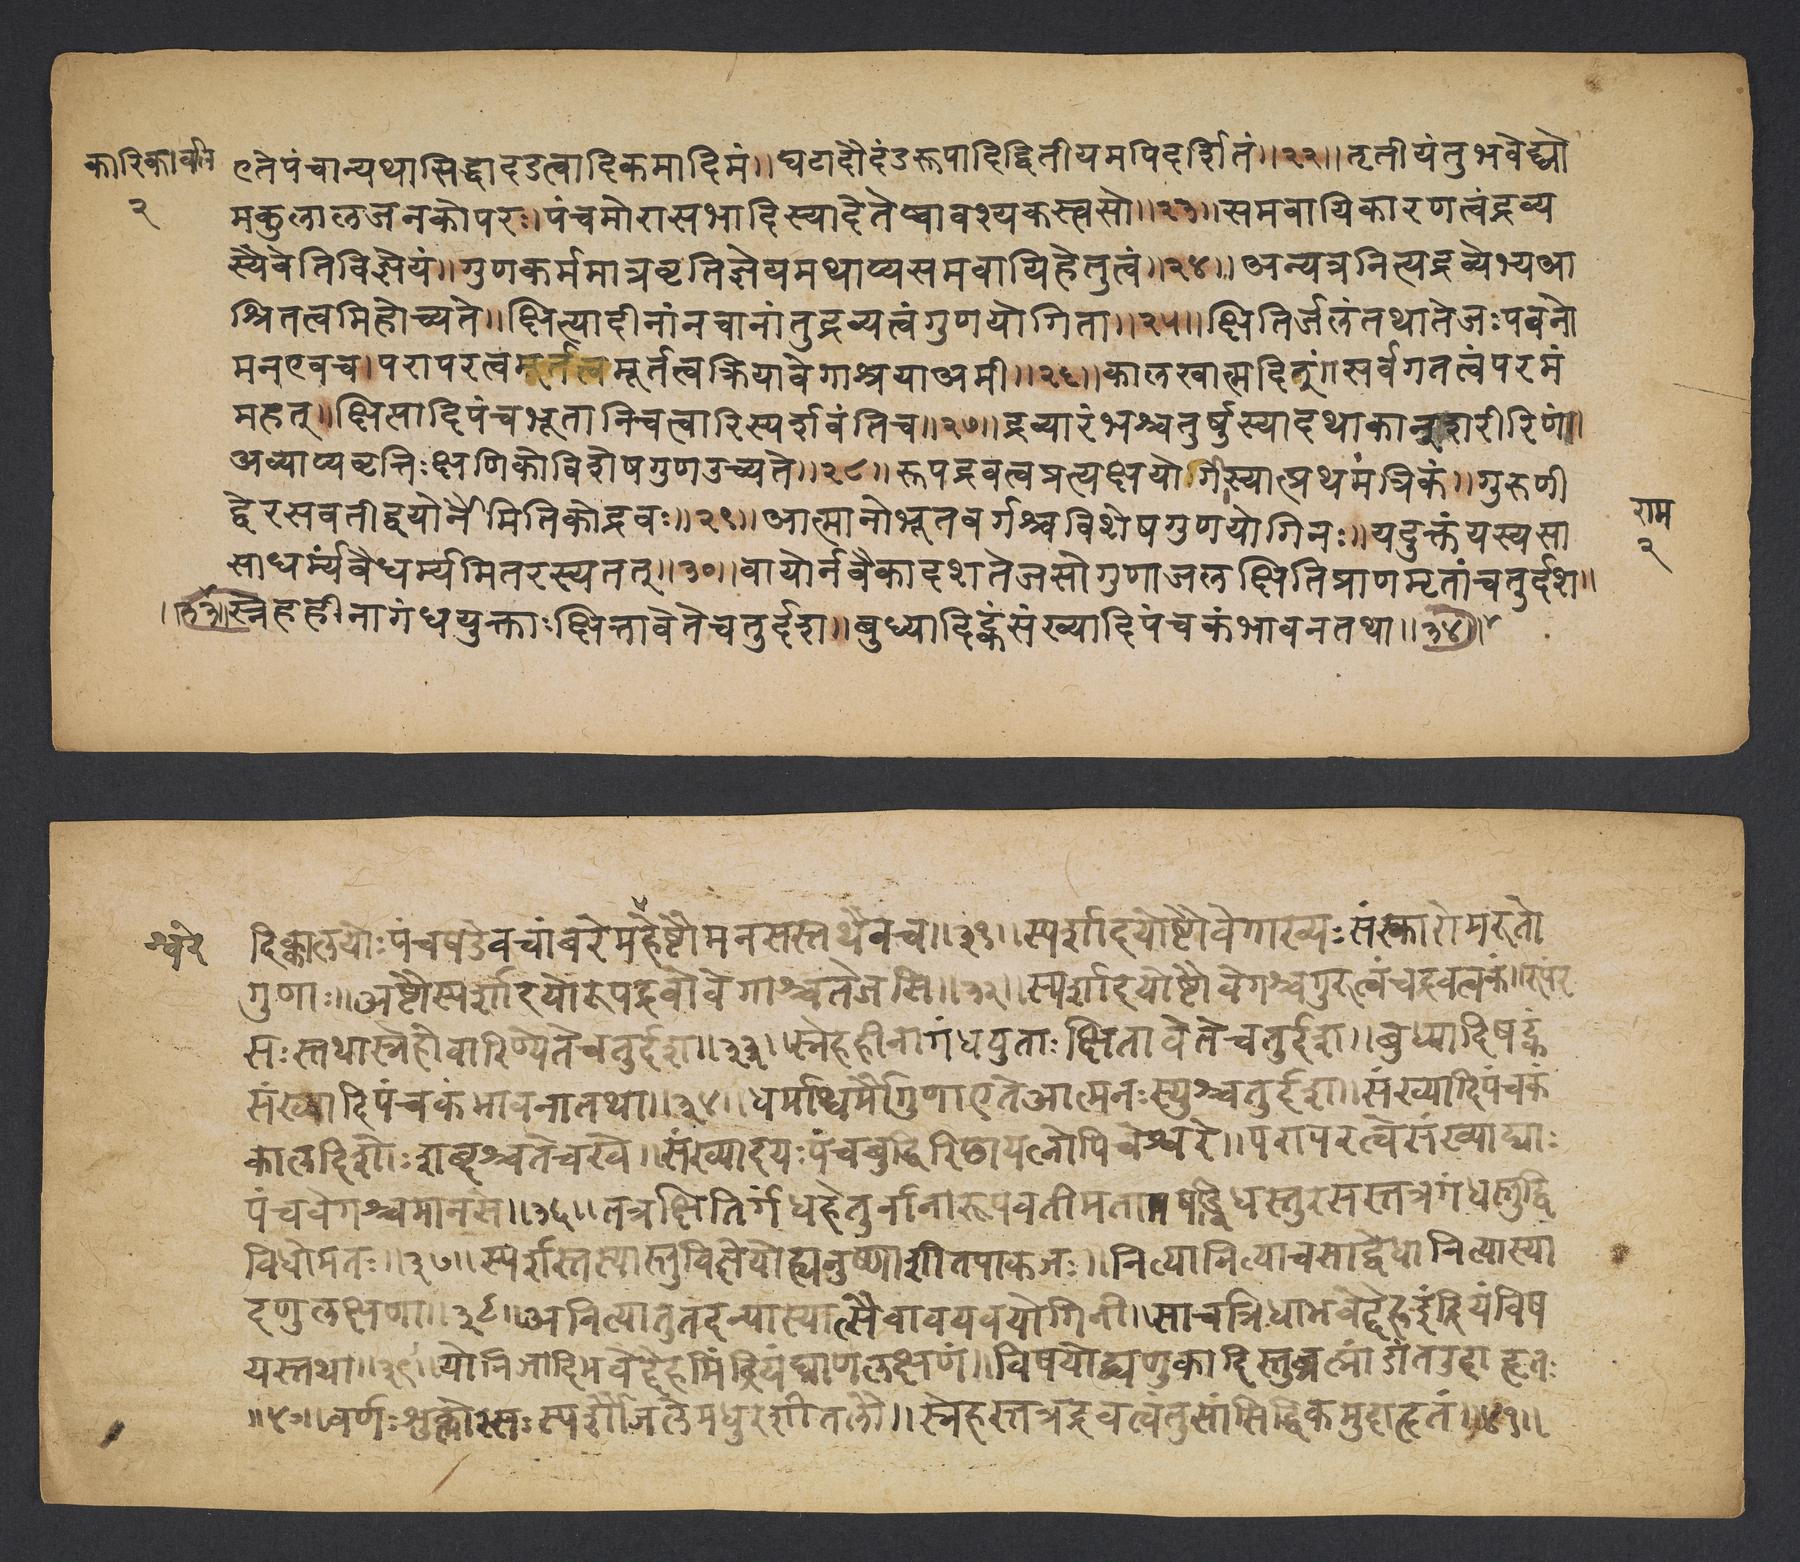 कारिकावलि
२
एतेपंचान्यथासिद्धादंडत्वादिकमादिमं॥घटादौदंडरूपादिद्वितीयमपिदर्शितं॥२२॥तृतीयंतुभवेद्व्यो
मकुलालजनकोपरः।पंचमोरासभादिस्यादेतेष्वावश्यकस्त्वसौ॥२३॥समवायिकारणत्वंद्रव्य
स्यैवेतिविज्ञेयं॥गुणकर्ममात्रवृतिज्ञेयमथाप्यसमवायिहेतुत्वं॥२४॥अन्यत्रनित्यद्रव्येभ्यआ
श्रितत्वमिहोच्यते॥क्षित्यादीनांनवानांतुद्रव्यत्वंगुणयोगिता॥२५॥क्षितिर्जलंतथातेजःपवनो
मनएवच।परापरत्वमूर्तत्वमूर्तत्वक्रियावेगाश्रयाअमी॥२६॥कालखात्मदिशां॥सर्वगतत्वंपरमं
महत्॥क्षित्यादिपंचभूतानिचत्वारिस्पर्शवंतिच॥२७॥द्रव्यारंभश्चतुर्षुस्यादथाकाशशरीरिणां॥
अव्याप्यवृत्तिःक्षणिकोविशेषगुणउच्यते॥२८॥रूपद्रवत्वप्रत्यक्षयोगिस्यात्प्रथमंत्रिकं॥गुरुणी
द्वेरसवतीद्वयोर्नैमितिकोद्रवः॥२९॥आत्मानोभूतवर्गश्चविशेषगुणयोगिनः॥यदुक्तंयस्यसा
साधर्म्यंवैधर्म्यमितरस्यतत्॥३०॥वायोर्नवैकादशतेजसोगुणाजलक्षितिप्राणभृतांचतुर्दश॥
स्नेहहीनागंधयुक्ताःक्षितावेतेचतुर्दश॥बुध्यादिषट्कंसंख्यादिपंचकंभावनतथा॥३४॥
राम
२
श्वरे
दिक्कालयोःपंचषडेवचांबरेमहेष्टौमनसस्तथैवच॥३१॥स्पर्शादयोष्टौवेगाख्यःसंस्कारोमरुतो
गुणाः॥अष्टौस्पर्शादयोरूपद्रवौवेगाश्चतेजसि॥३२॥स्पर्शादयोष्टौवेगश्चगुरुत्वंचद्रवत्वकं॥रूपंर
सःस्तथास्नेहोवारिण्येतेचतुर्दश॥३३॥स्नेहहीनागंधयुताःक्षितावेतेचतुर्दश॥बुध्यादिषट्कं
संख्यादिपंचकंभावनातथा॥३४॥धर्माधर्मौगुणाएतेआत्मनःस्युश्चतुर्दश॥संख्यादिपंचकं
कालदिशोःशब्दश्चतेचखे॥संख्यादयःपंचबुद्धिरिछायत्नोपिचेश्वरे॥परापरत्वेसंख्याद्याः
पंचवेगश्चमानसे॥३६॥तत्रक्षितिर्गंधहेतुर्नानारूपवतीमताषड्विधस्तुरसस्तत्रगंधस्तुद्वि
विधोमतः॥३७॥स्पर्शस्तस्यास्तुविज्ञेयोह्यनुष्णाशीतपाकजः॥नित्यानित्याचसाद्वेधानित्यास्या
दणुलक्षणा॥३८॥अनित्यातुतदन्यास्यात्सैवावयवयोगिनी॥साचत्रिधाभवेद्देहइंद्रियंविष
यस्तथा॥३९॥योनिजादिर्भवेद्देहमिंद्रियंघ्राणलक्षणं॥विषयोद्व्यणुकादिस्तुब्रह्मांडांतउदाहृतः
॥४०॥वर्णःशुक्लोरसःस्पर्शौजलेमधुरशीतलौ॥स्नेहस्तत्रद्रवत्वंतुसांसिद्धिकमुदाहृतं॥४१॥